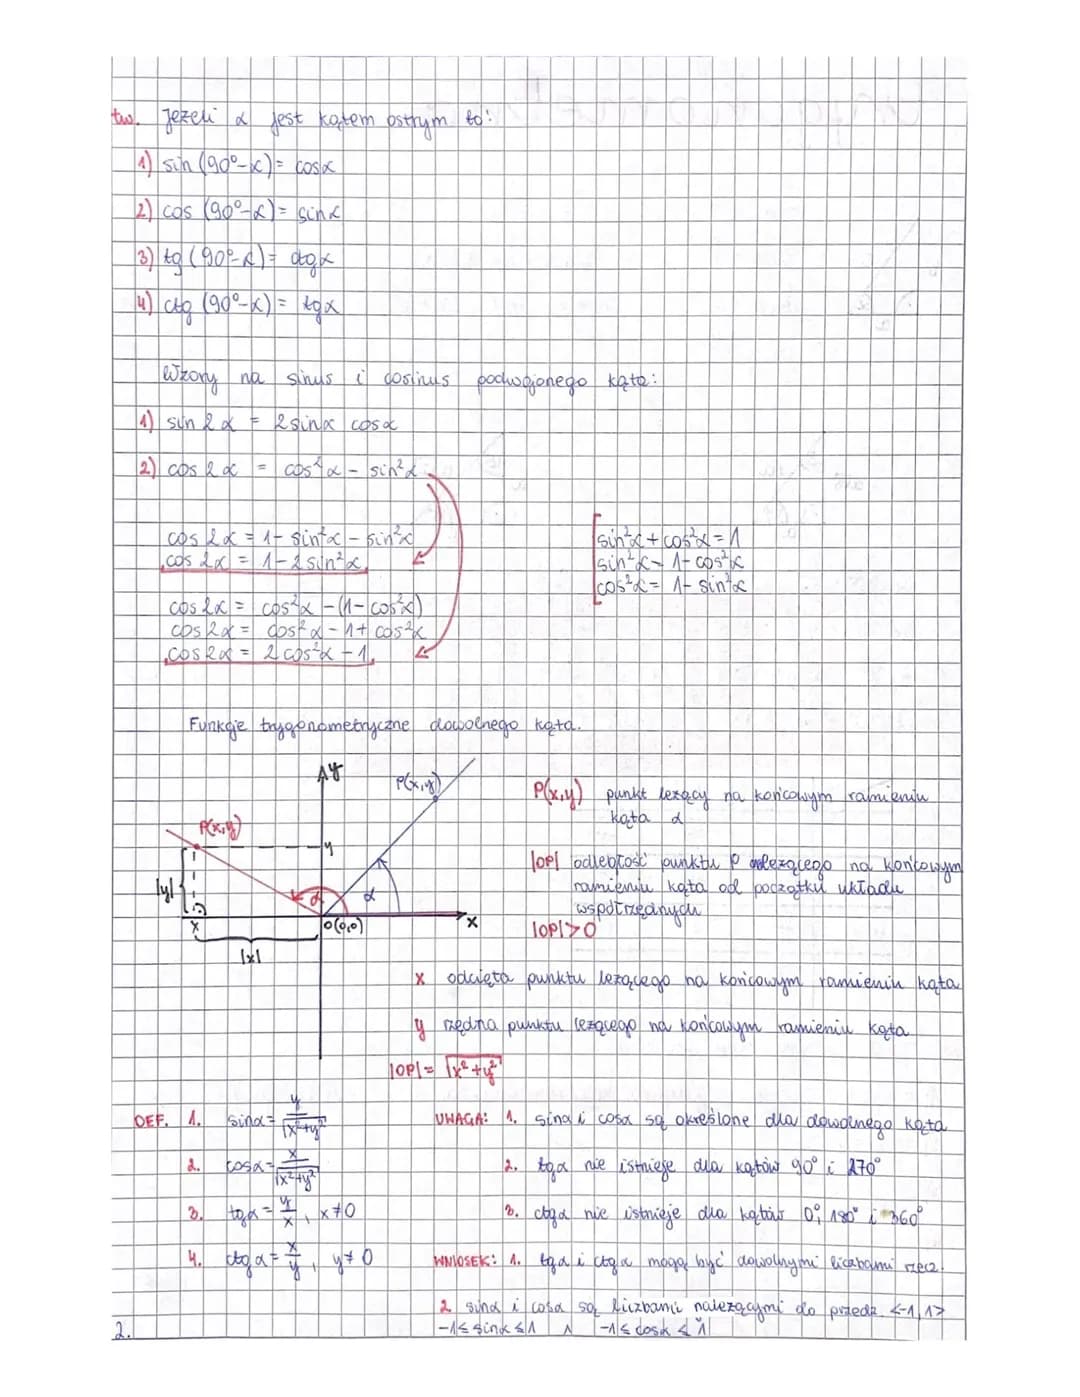 tw. Jeżeli α jest kątem ostrym to:
1) sin (90°-α) = cosα
2) cos (90°-α) = sinα
3) tg (90°-α) = ctgα
4) ctg (90°-α) = tgα
Wzory na sinus i cosinus podwojonego kąta:
1) sin 2α = 2sinα cosα
2) cos 2α = cos²α - sin²α
cos 2α = 1 - sin²α - sin²α
cos 2α = 1 - 2sin²α
cos 2α = cos²α - (1-cos²α)
cos 2α = cos²α - 1 + cos²α
cos 2α = 2cos²α - 1
sin²α + cos²α = 1
sin²α = 1 - cos²α
cos²α = 1 - sin²α
Funkcje trygonometryczne dowolnego kąta.
y
P(x,y)
P(x,y)
y
|y|
α
α
x
O(0,0)
x
|x|
P(x,y) punkt leżący na końcowym ramieniu
kąta α
|OP| odległość punktu P należącego na końcowym
ramieniu kąta od początku układu
współrzędnych
|OP|>0
x odcięta punktu leżącego na końcowym ramieniu kąta
y rzędna punktu leżącego na końcowym ramieniu kąta
|OP| = √x²+y²
DEF. 1. sinα = y/√x²+y²
2. cosα = x/√x²+y²
3. tgα = y/x, x≠0
4. ctgα = x/y, y≠0
UWAGA: 1. sinα i cosα są określone dla dowolnego kąta
2. tgα nie istnieje dla kątów 90° i 270°
3. ctgα nie istnieje dla kątów 0°, 180° i 360°
WNIOSEK: 1. tgα i ctgα mogą być dowolnymi liczbami rzecz.
2. sinα i cosα są liczbami należącymi do przedz. <-1,1>
-1≤sinα≤1 ∧ -1≤cosα≤1
2.